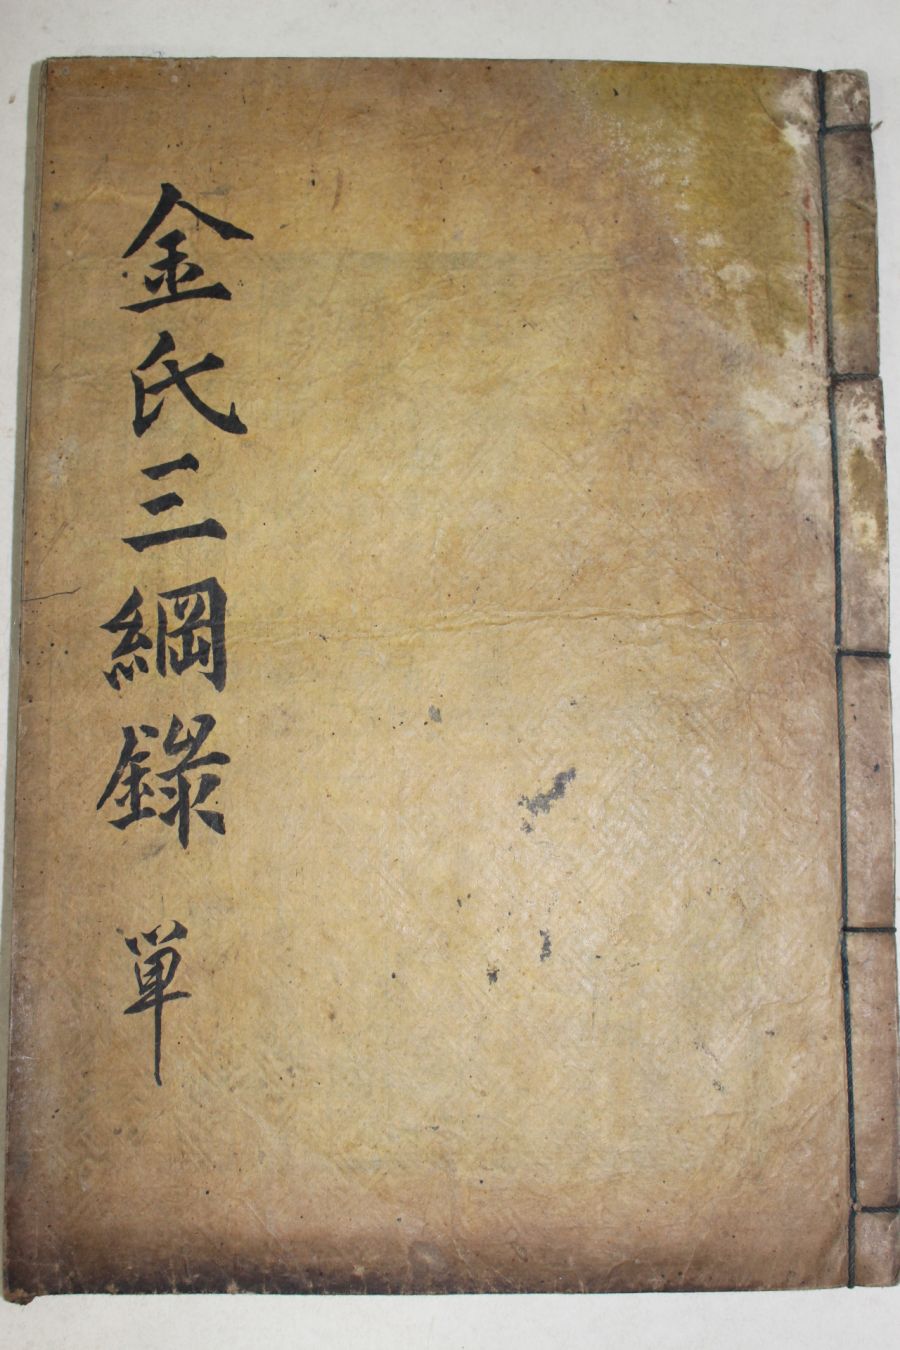 金氏三綱錄 単